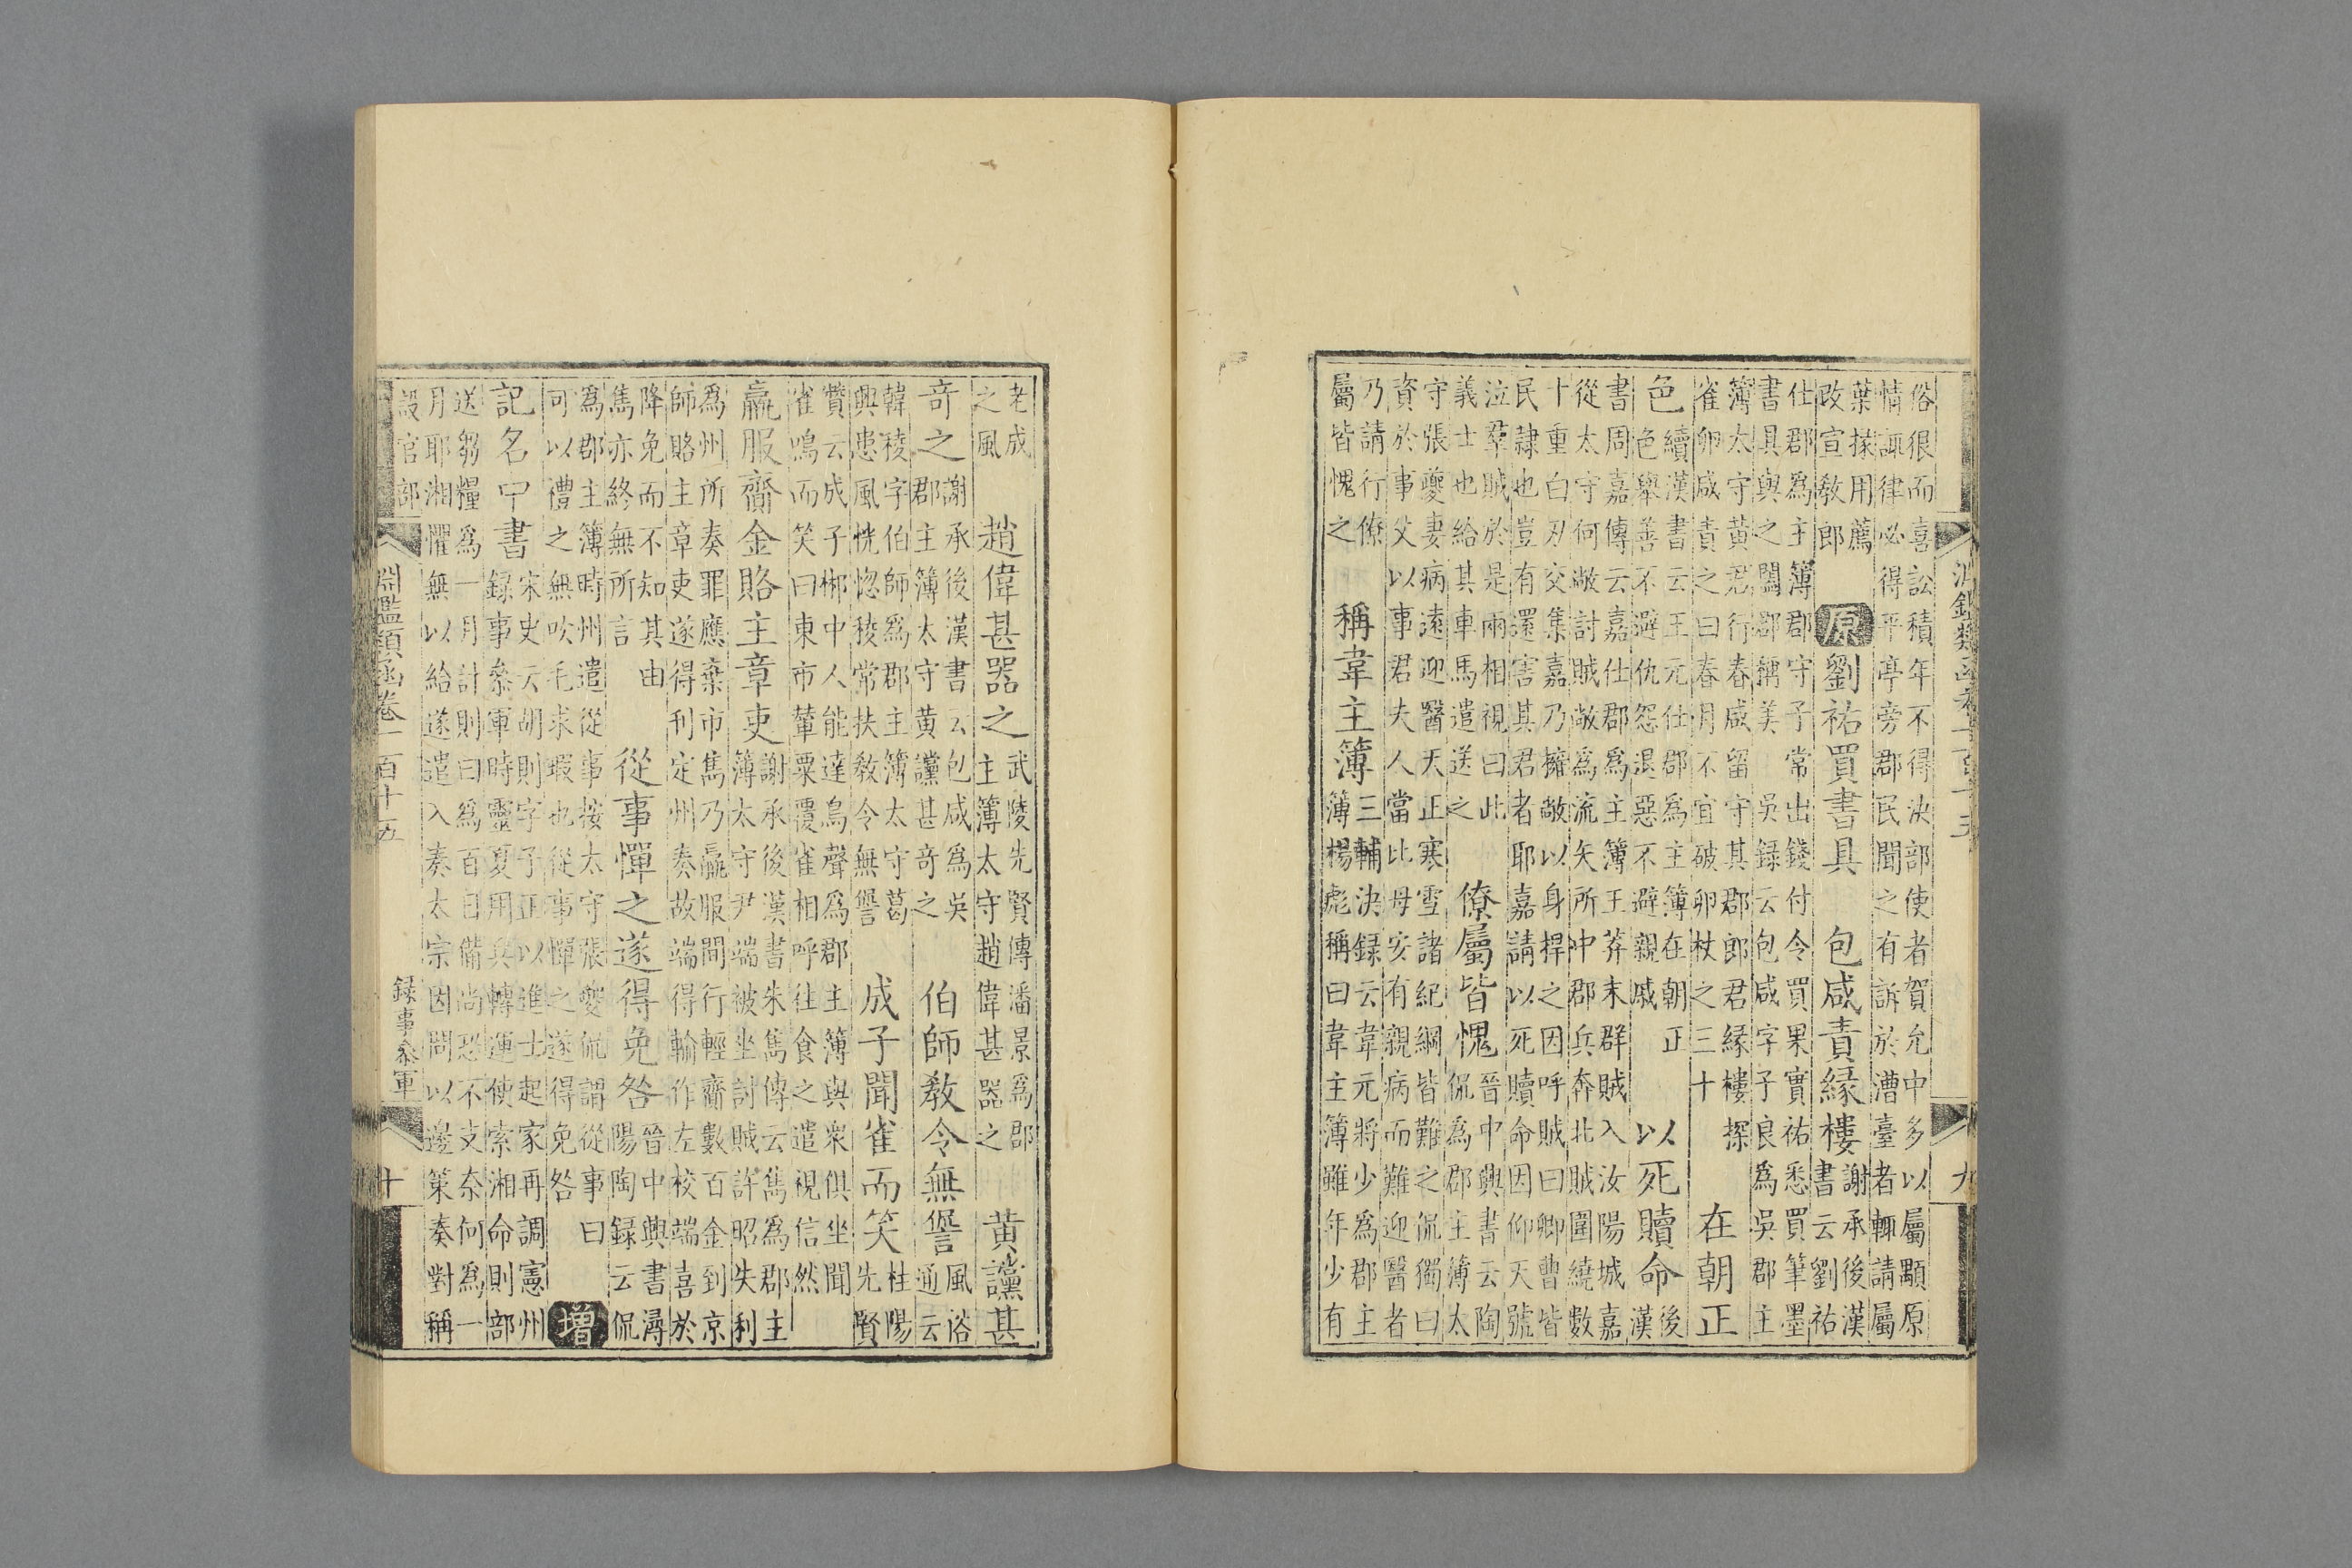 俗很而喜訟積年不得決部使者賀允中多以屬顒原
情諏律必得平亭旁郡民聞之有訴於漕臺者輒請屬
葉掾用薦
改宣敎郎
原 劉祐買書具 包咸責緣樓
謝承後漢
書云劉祐
仕郡爲主簿郡守子常出錢付令買果實祐悉買筆墨
書具與之闔郡稱美 吳録云包咸字子良爲吳郡主
簿太守黃君行春咸留守其郡郎君緣樓探
雀卵咸責之曰春月不宜破卵杖之三十
在朝正
色
續漢書云王元仕郡爲主簿在朝正
色舉善不避仇怨退惡不避親戚
以死贖命
後
漢
書周嘉傳云嘉仕郡爲主簿王莽末群賊入汝陽城嘉
從太守何敞討賊敞爲流矢所中郡兵奔北賊圍繞數
十重白刃交集嘉乃擁敞以身捍之因呼賊曰卿曹皆
民隷也豈有還害其君者耶嘉請以死贖命因仰天號
泣羣賊於是兩相視曰此
義士也給其車馬遣送之
僚屬皆愧
晉中興書云陶
侃爲郡主簿太
守張夔妻病遠迎醫天正寒雪諸紀綱皆難之侃獨曰
資於事父以事君夫人當比母安有親病而難迎醫者
乃請行僚
屬皆愧之
稱韋主簿
三輔決録云韋元將少爲郡主
簿楊彪稱曰韋主簿雖年少有
九
老成
之風
趙偉甚器之
武陵先賢傳潘景爲郡
主簿太守趙偉甚器之
黃讜甚
奇之
謝承後漢書云包咸爲吳
郡主簿太守黃讜甚奇之
伯師敎令無諐
風俗
通云
韓稜字伯師爲郡主簿太守葛
興患風恍惚稜常扶敎令無諐
成子聞雀而笑
桂陽
先賢
贊云成子郴中人能達鳥聲爲郡主簿與衆俱坐聞
雀鳴而笑曰東市輦粟覆雀相呼往食之遣視信然
羸服齎金賂主章吏
謝承後漢書朱雋傳云雋爲郡主
簿太守尹端被坐討賊許昭失利
爲州所奏罪應棄市雋乃羸服間行輕齎數百金到京
師賂主章吏遂得利定州奏故端得輸作左校端喜於
降免而不知其由
雋亦終無所言
從事憚之遂得免咎
晉中興書潯
陽陶録云侃
爲郡主簿時州遣從事按太守張夔侃謂從事曰
可以禮之無吹毛求瑕也從事憚之遂得免咎
增
記名中書
宋史云胡則字子正以進士起家再調憲州
録事參軍時靈夏用兵轉運使索湘命則部
送芻糧爲一月計則曰爲百日備尚恐不支奈何爲一
月耶湘懼無以給遂遣入奏太宗因問以邊策奏對稱
設官部
淵鑑類函卷一百十五
録事參軍
十